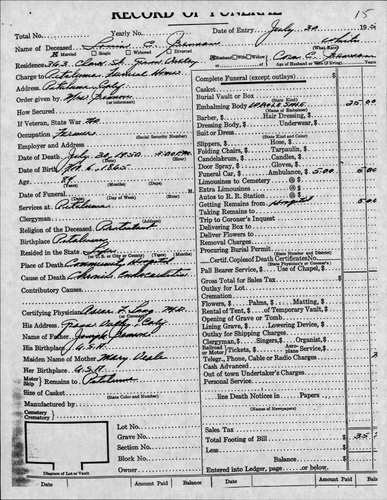 15
RECORD OF FUNERAL
Total No. Yearly No. Date of Entry July 30 195
Name of Deceased Louis C. Freeman White
Married Single Widowed Divorced Husband Wife Widow Cora E. Freeman
Residence 363 Clark St. Grass Valley Age of Husband or Wife (if living) Years
Charge to Petaluma Funeral Home
Address Petaluma, Calif
Order given by Mrs. Freeman
(or informant)
How Secured
If Veteran, State War No
Occupation Farmer
(Social Security Number)
Employer and Address
Date of Death July 30, 1950
(Hour)
Date of Birth 6, 1865
Age
Date of Funeral
(Date) (Day of Week) (Hour)
Services at Petaluma
Clergyman
Religion of the Deceased Protestant
Birthplace Petaluma
Resided in the State
(or U.S. or City or County)
Place of Death Community Hospital
Cause of Death Chronic Endocarditis
Contributory Causes
Certifying Physician M.D.
His Address Grass Valley, Calif
Name of Father Joseph Freeman
His Birthplace U.S.A.
Maiden Name of Mother Mary
Her Birthplace U.S.A.
Motor Ship Remains to Petaluma
Size of Casket
(State Color and Number)
Manufactured by
Cemetery
Crematory
Lot No.
Grave No.
Section No.
Block No.
Owner
Diagram of Lot or Vault
Complete Funeral (except outlays) $
Casket
Burial Vault or Box
(State Kind)
Embalming Body 25.00
(Name of Embalmer)
Barber, Hair Dressing, $
Dressing Body, $ Underwear, $
Suit or Dress
(State Kind and Color)
Slippers, $ Hose, $
Folding Chairs, $ Tarpaulin, $
Candelabrum, $ Candles, $
Door Spray, $ Gloves, $
Funeral Car, $ Ambulance, $ 5.00 5.00
Limousines to Cemetery @ $
Extra Limousines @ $
Autos to R. R. Station @ $
Getting Remains from Hospital 5.00
Taking Remains to
Trip to Coroner's Inquest
Delivering Box to
Deliver Flowers to
Removal Charges
Procuring Burial Permit
(State Number and District)
Certif. Copies of Death Certificates No.
(State Physician's or Coroner's)
Pall Bearer Service, $ Use of Chapel, $
Gross Total for Sales Tax $
Outlay for Lot
Cremation
Flowers, $ Palms, $ Matting, $
Rental of Tent, $ of Temporary Vault, $
Opening of Grave or Tomb
Lining Grave, $ Lowering Device, $
Outlay for Shipping Charges
Clergyman, $ Singers, $ Organist, $
Railroad or Motor Tickets, $ Aeroplane Service $
Telegr., Phone, Cable or Radio Charges
Cash Advanced
Out of town Undertaker's Charges
Personal Service
line Death Notices in Papers
(Names of Newspapers)
Sales Tax
Total Footing of Bill $ 35
Less
Balance
Entered into Ledger, page or below.
Date Amount Paid Balance Date Amount Paid Balance